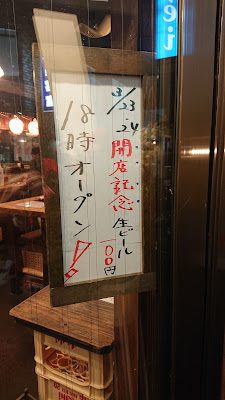 3/23.24 開店記念 生ビール100円
18時オープン!
ei